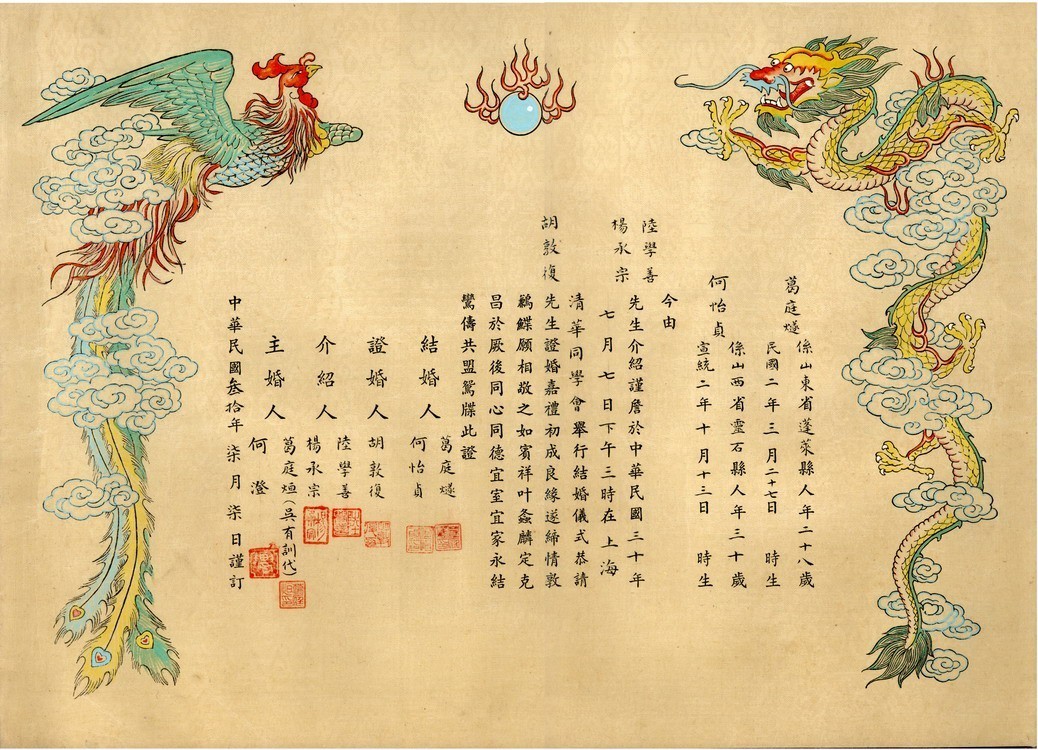 葛庭燧 係山東省蓬萊縣人年二十八歲
民國二年三月二十七日 時生
何怡貞 係山西省靈石縣人年三十歲
宣統二年十月十三日 時生
今由
陸學善
楊永宗
先生介紹謹詹於中華民國三十年
七月七日下午三時在上海
清華同學會舉行結婚儀式恭請
胡敦復先生證婚嘉禮初成良緣遂締情敦
鶼鰈願相敬之如賓祥叶螽麟定克
昌於厥後同心同德宜室宜家永結
鸞儔共盟鴛牒此證
結婚人
葛庭燧
何怡貞
證婚人
胡敦復
介紹人
陸學善
楊永宗
主婚人
葛庭烜(吳有訓代)
何澄
中華民國叁拾年柒月柒日謹訂